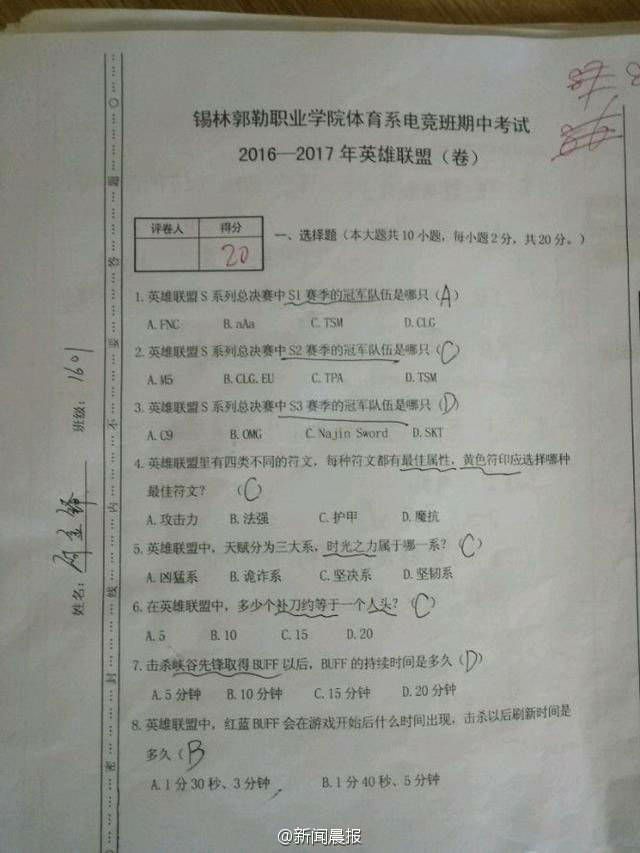 锡林郭勒职业学院体育系电竞班期中考试
2016—2017年英雄联盟（卷）
评卷人 得分
20
一、选择题（本大题共10小题，每小题2分，共20分。）
1.英雄联盟S系列总决赛中S1赛季的冠军队伍是哪只（A）
A.FNC B.aAa C.TSM D.CLG
2.英雄联盟S系列总决赛中S2赛季的冠军队伍是哪只（C）
A.M5 B.CLG.EU C.TPA D.TSM
3.英雄联盟S系列总决赛中S3赛季的冠军队伍是哪只（D）
A.C9 B.OMG C.Najin Sword D.SKT
4.英雄联盟里有四类不同的符文，每种符文都有最佳属性，黄色符印应选择哪种
最佳符文？ （C）
A.攻击力 B.法强 C.护甲 D.魔抗
5.英雄联盟中，天赋分为三大系，时光之力属于哪一系？（C）
A.凶猛系 B.诡诈系 C.坚决系 D.坚韧系
6.在英雄联盟中，多少个补刀约等于一个人头？（C）
A.5 B.10 C.15 D.20
7.击杀峡谷先锋取得BUFF以后，BUFF的持续时间是多久（D）
A.5分钟 B.10分钟 C.15分钟 D.20分钟
8.英雄联盟中，红蓝BUFF会在游戏开始后什么时间出现，击杀以后刷新时间是
多久（B）
A.1分30秒、3分钟 B.1分40秒、5分钟
班级：1601
姓名：
密 封 线 内 不 要 答 题
@新闻晨报